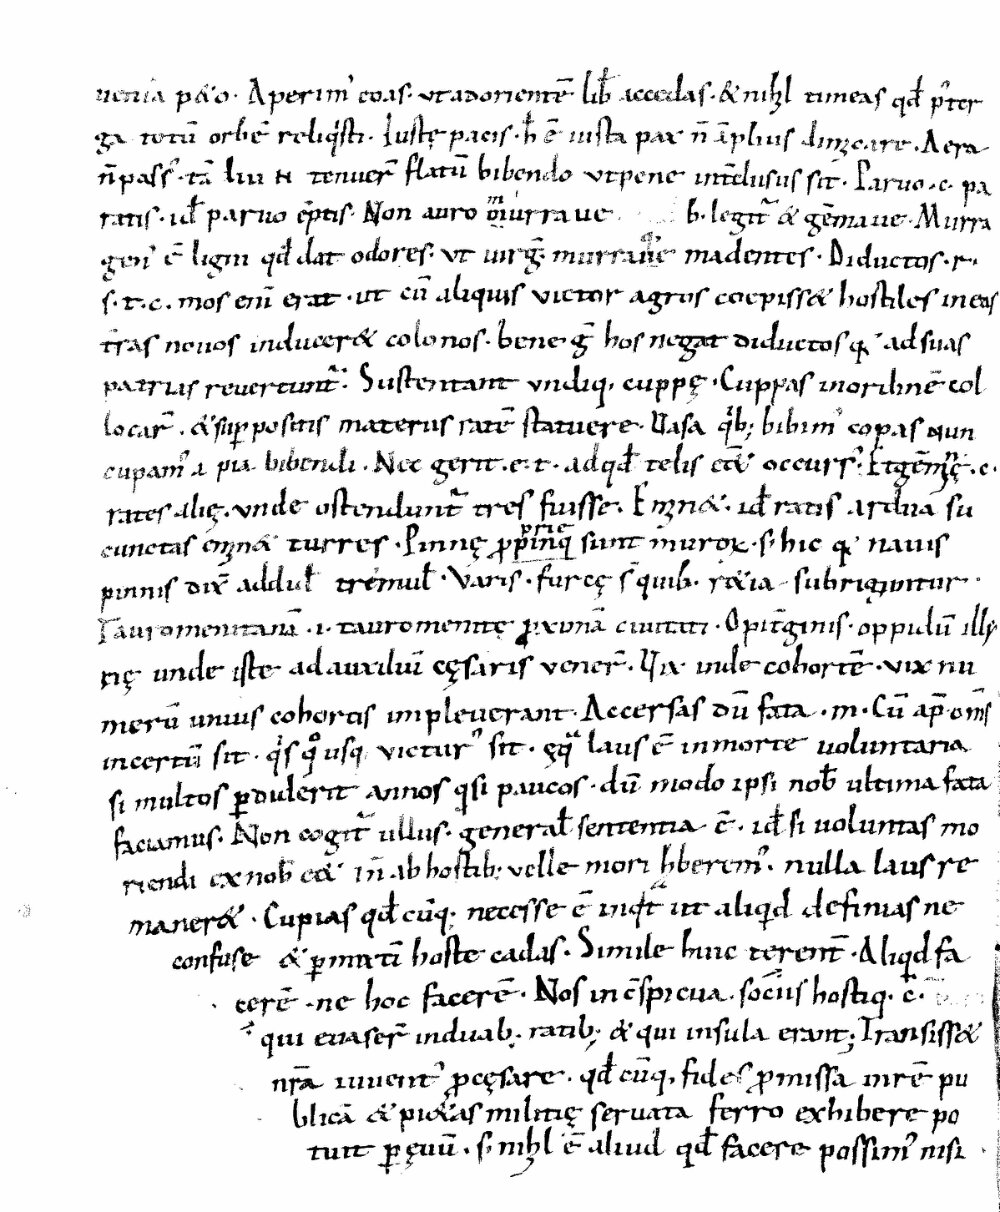 uenia p&o. Aperim' eoas. vt ad oriente᷃ lib̄ accedas. & nihil timeas qđ p'ter
ga totū orbē reliq'sti. Iustę pacis. h̄ ē iusta pax n̄ āplius dimicare. Aera
n̄ pass'. tā tenuer̄ flatū bibendo vt pene intclusus sit. Paruo .c. pa
ratis. iđ paruo ēptis. Non auro murra ue b. legit' & gēma ue. Murra
gen' ē ligni qđ dat odores. vt uirg̅ murra ue madentes. Diductos .r.
s. t. c. mos eni erat. ut cū aliquis victor agros coepiss& hostiles in eas
t̄ras nouos inducer& colonos. bene g̅ hos negat diductos q' ad suas
patrias revertunt'. Sustentant vndiq, cuppę. Cuppas in ordinē col
locar̄. & sup positis materiis ratē statuere. Vasa q'b; bibim' copas nun
cupam' a bibendi. Nec gerit. e. t. ad qđ telis occurs'.
rates alię. vnde ostendunt' tres fuisse. Emin&. iđ ratis ardua su
cunctas emin& turres. Pinnę ꝓprie sunt muroꝝ. s; hic q' nauis
pinnis dix̄ addul' tremul'. Varis. furcę s̄ quib. r&ia subriguntur.
Tauromenitanā .i. tauromenitę ꝓximā ciuitati. Opit̄ginis. oppidū illy
rię unde iste ad auxiliū cęsaris vener̄. Vix inde cohortē. vix nu
merū unius cohortis impleuerant. Accersas dū fata .m. Cū ap̄ om̄s
incertū sit. q's q°usq, victur' sit. ęq̄ laus ē in morte uoluntaria
si multos ꝑdulerit annos q'si paucos. dū modo ipsi nob̄ ultima fata
faciamus. Non cogit' ullus. general̄ sententia ē. iđ si uoluntas mo
riendi ex nob̄ eē& in̄ ab hostib; velle mori liberem'. nulla laus re
maner&. Cupias qđ cūq; necesse ē inq't ut aliq'd definias ne
confuse & ꝑmixtī hoste cadas. Simile huic terent̄. Aliq'd fa
cerē. ne hoc facerē. Nos in c̄spicua. sociis hostiq. c̄.
qui euaser̄ induab, ratib; & qui insula erant; Transiss&
nr̄a iuuent' ꝓ cęsare. qđ cūq, fides ꝓmissa in rē pu
blicā & pi&as militię seruata ferro exhibere po
tuit ꝑ ęuū. s; nihil ē aliud qđ facere possim' nisi